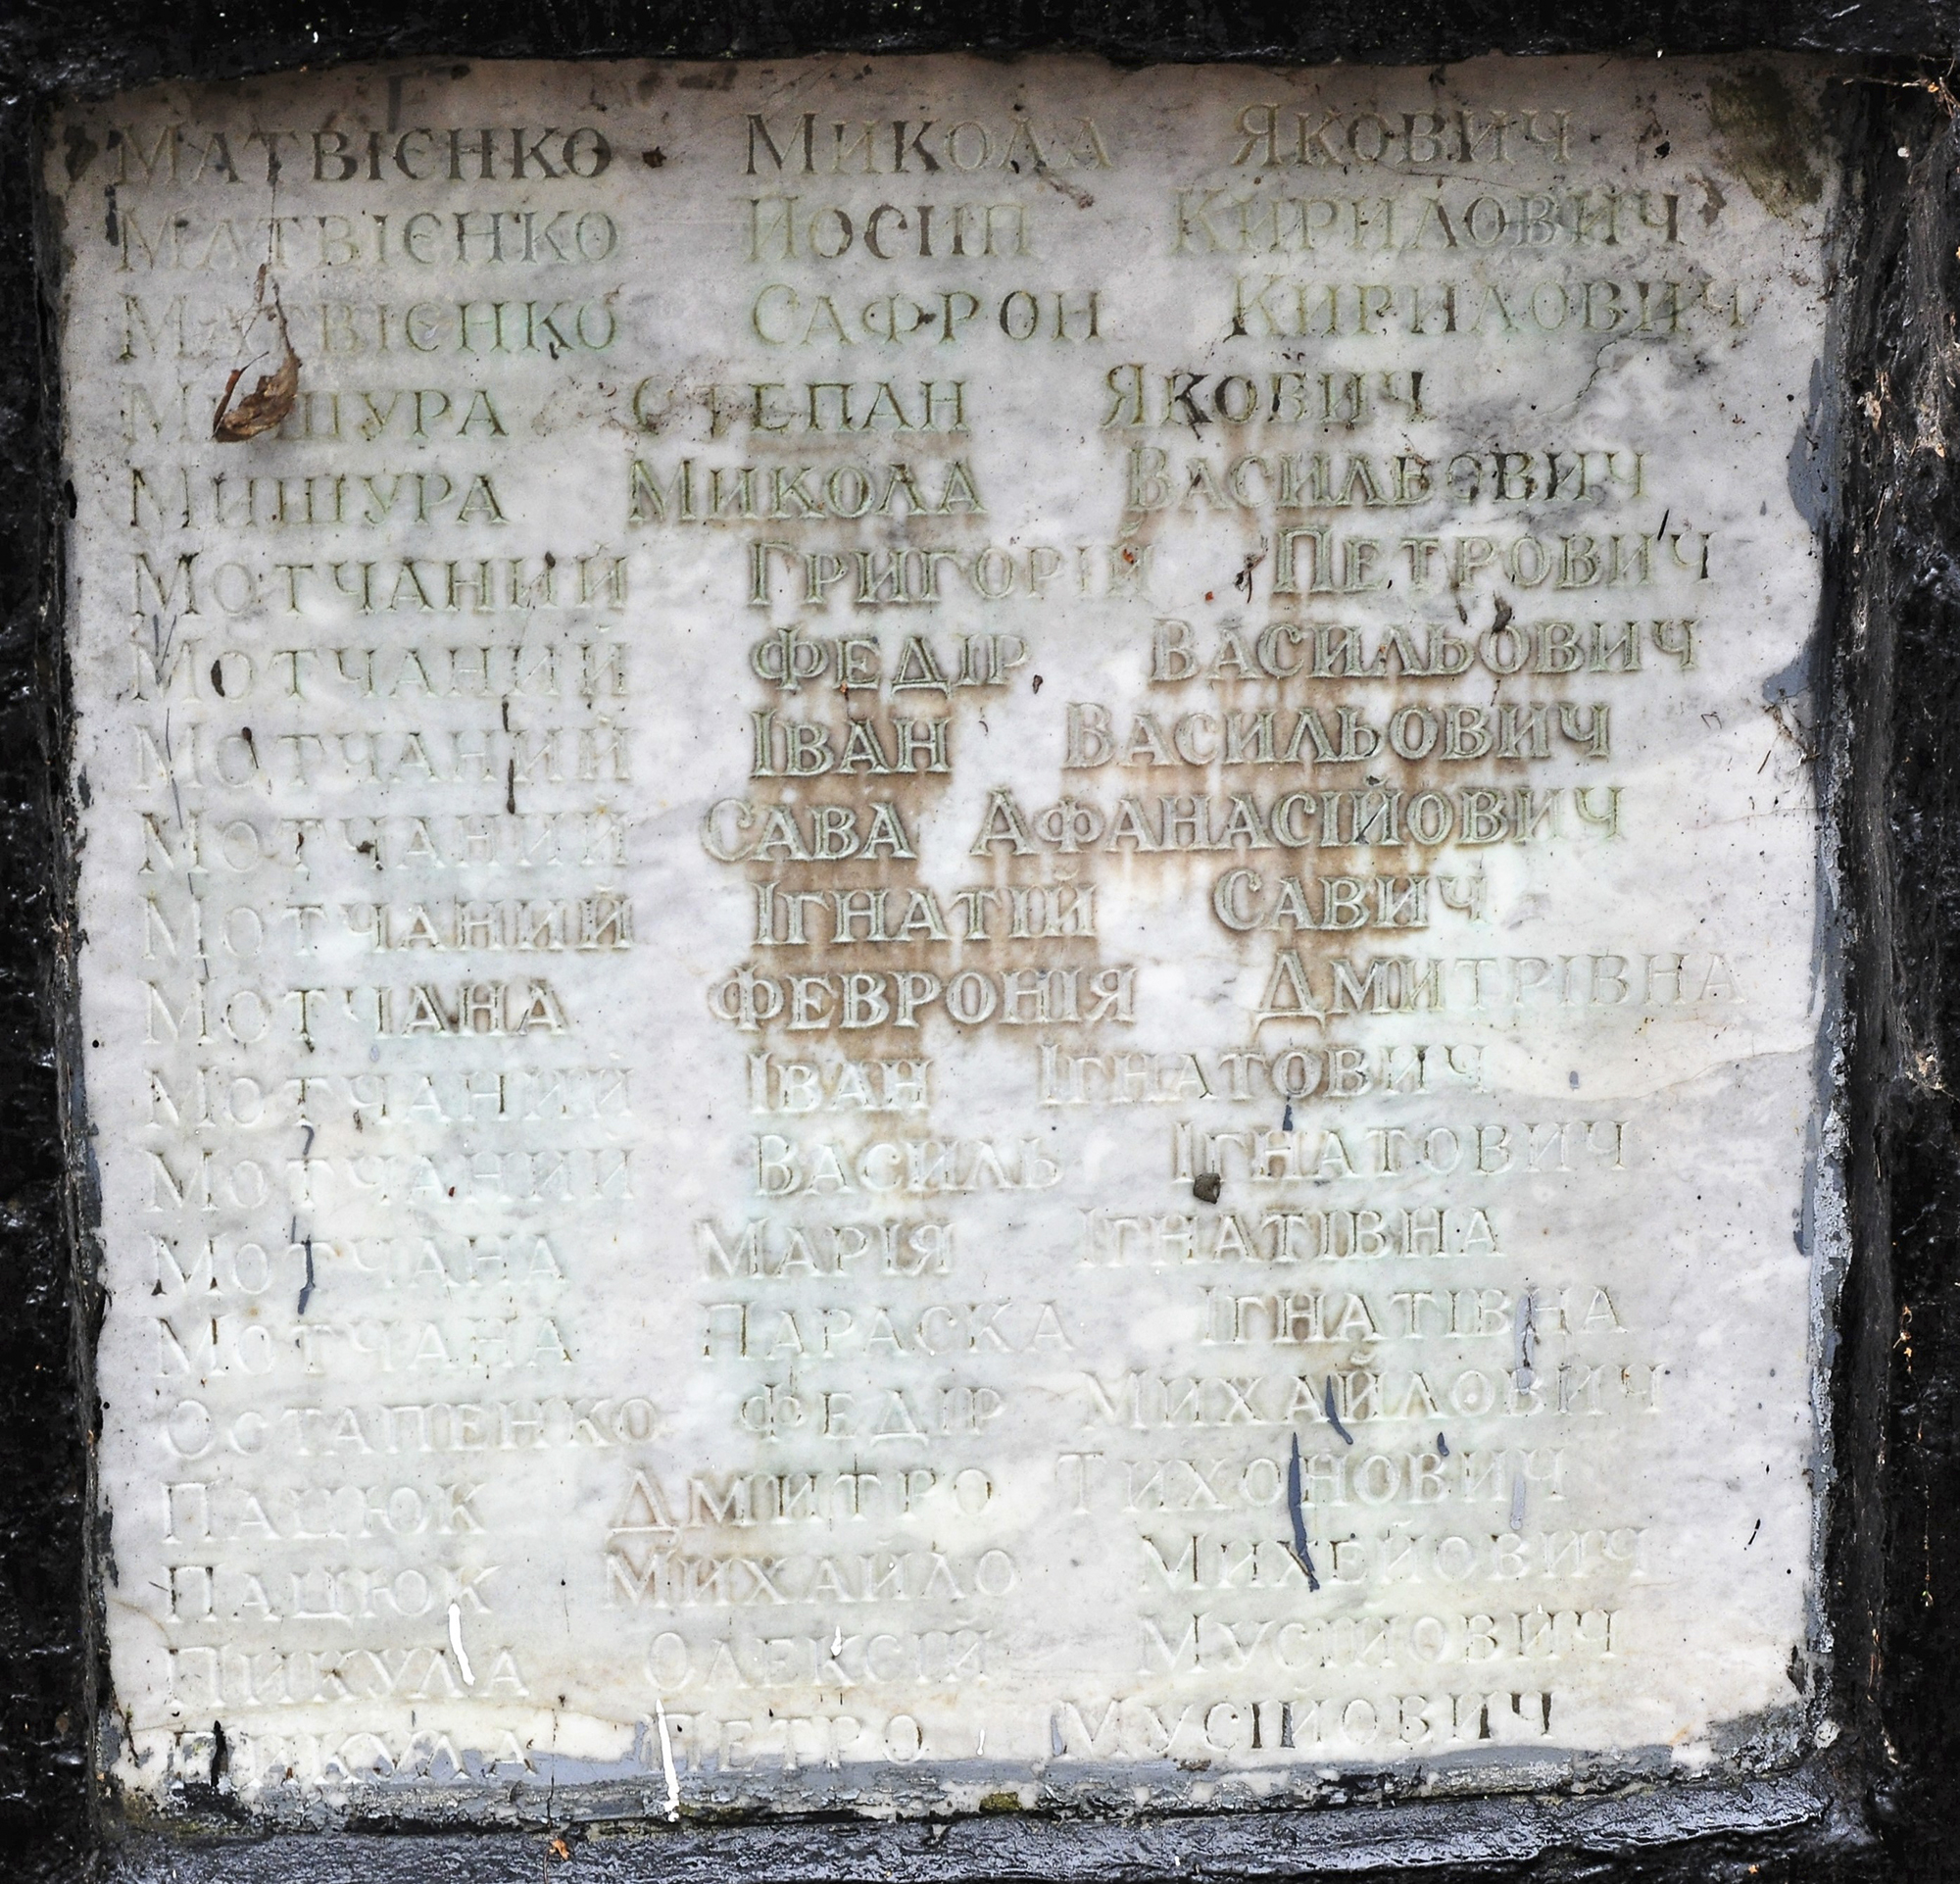 Матвієнко Микола Якович
Матвієнко Йосип Кирилович
Матвієнко Сафрон Кирилович
Мишура Степан Якович
Мишура Микола Васильович
Мотчаний Григорій Петрович
Мотчаний Федір Васильович
Мотчаний Іван Васильович
Мотчаний Сава Афанасійович
Мотчаний Ігнатій Савич
Мотчана Февронія Дмитрівна
Мотчаний Іван Ігнатович
Мотчаний Василь Ігнатович
Мотчана Марія Ігнатівна
Мотчана Параска Ігнатівна
Остапенко Федір Михайлович
Пацюк Дмитро Тихонович
Пацюк Михайло Михейович
Пикула Олексій Мусійович
Пикула Петро Мусійович